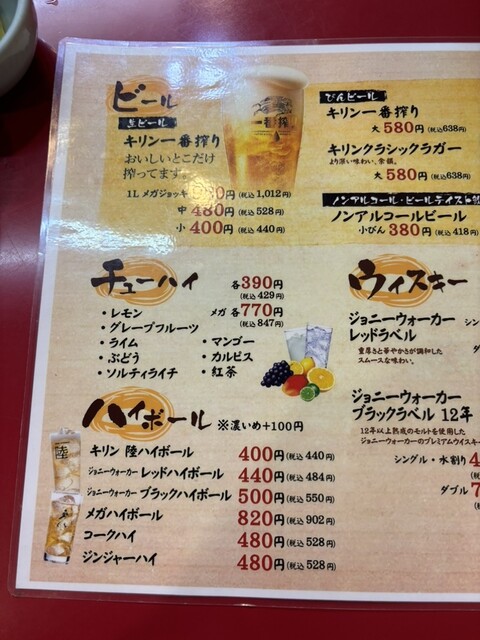 ビール
生ビール
キリン一番搾り
おいしいとこだけ
搾ってます。
1L メガジョッキ 円(税込1,012円)
中 480円(税込528円)
小 400円(税込440円)
一番搾
びんビール
キリン一番搾り
大 580円(税込638円)
キリンクラシックラガー
より深い味わい、余韻。
大 580円(税込638円)
ノンアルコール・ビールテイスト
ノンアルコールビール
小びん 380円(税込418円)
チューハイ 各390円
(税込429円)
メガ 各770円
(税込847円)
・レモン
・グレープフルーツ
・ライム
・ぶどう
・ソルティライチ
・マンゴー
・カルピス
・紅茶
ウィスキー
ジョニーウォーカー
レッドラベル
重厚さと華やかさが調和した
スムースな味わい。
ジョニーウォーカー
ブラックラベル 12年
12年以上熟成のモルトを使用した
ジョニーウォーカーのプレミアムウイスキー
シングル・水割り
ダブル
ハイボール ※濃いめ+100円
キリン 陸ハイボール 400円(税込440円)
ジョニーウォーカー レッドハイボール 440円(税込484円)
ジョニーウォーカー ブラックハイボール 500円(税込550円)
メガハイボール 820円(税込902円)
コークハイ 480円(税込528円)
ジンジャーハイ 480円(税込528円)
陸